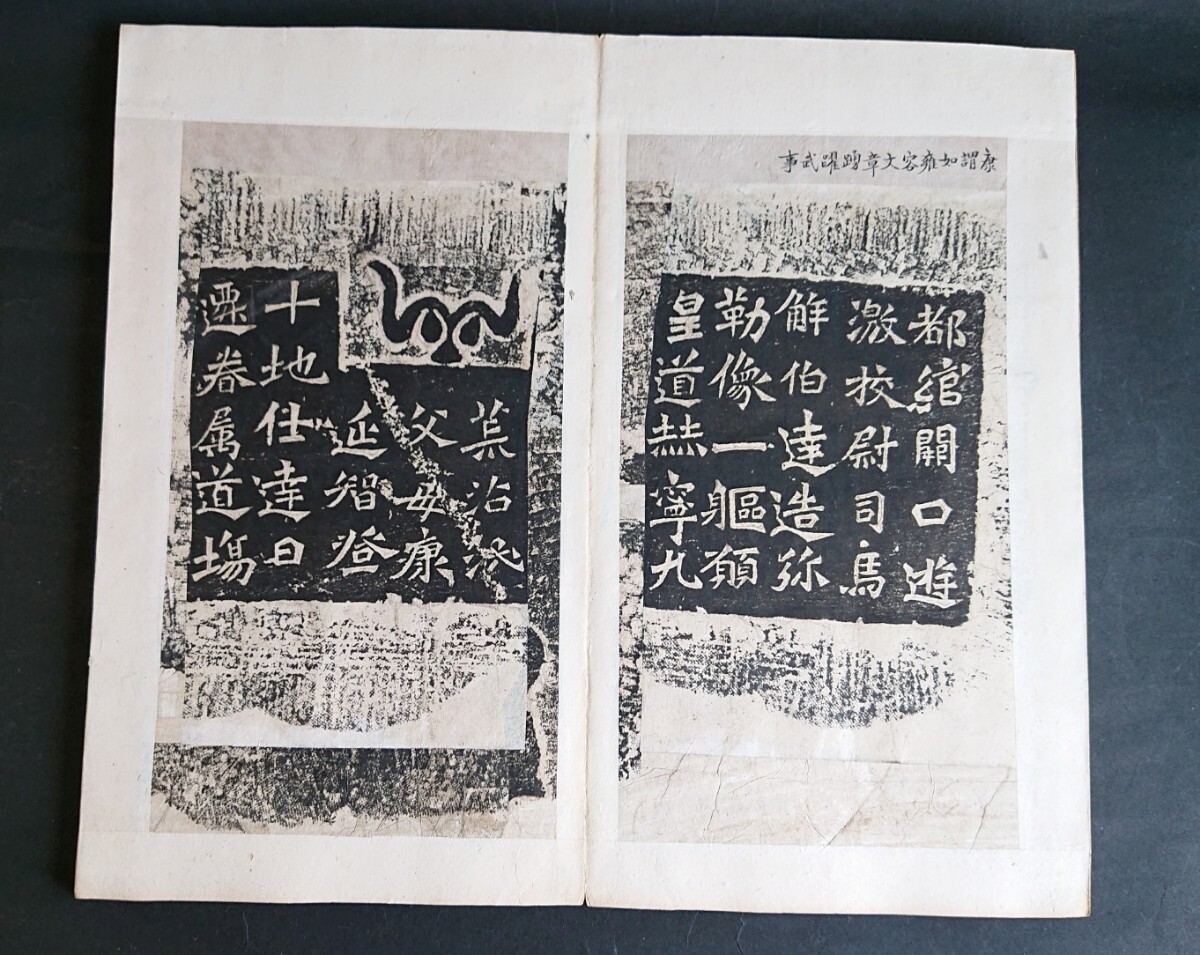 康謂如雍容文章踴躍武事
都綰關口遊
激校尉司馬
解伯達造弥
勒像一軀願
皇道赫寧九
荒沾泯
父母康
延智登
十地仕達日
遷眷属道場